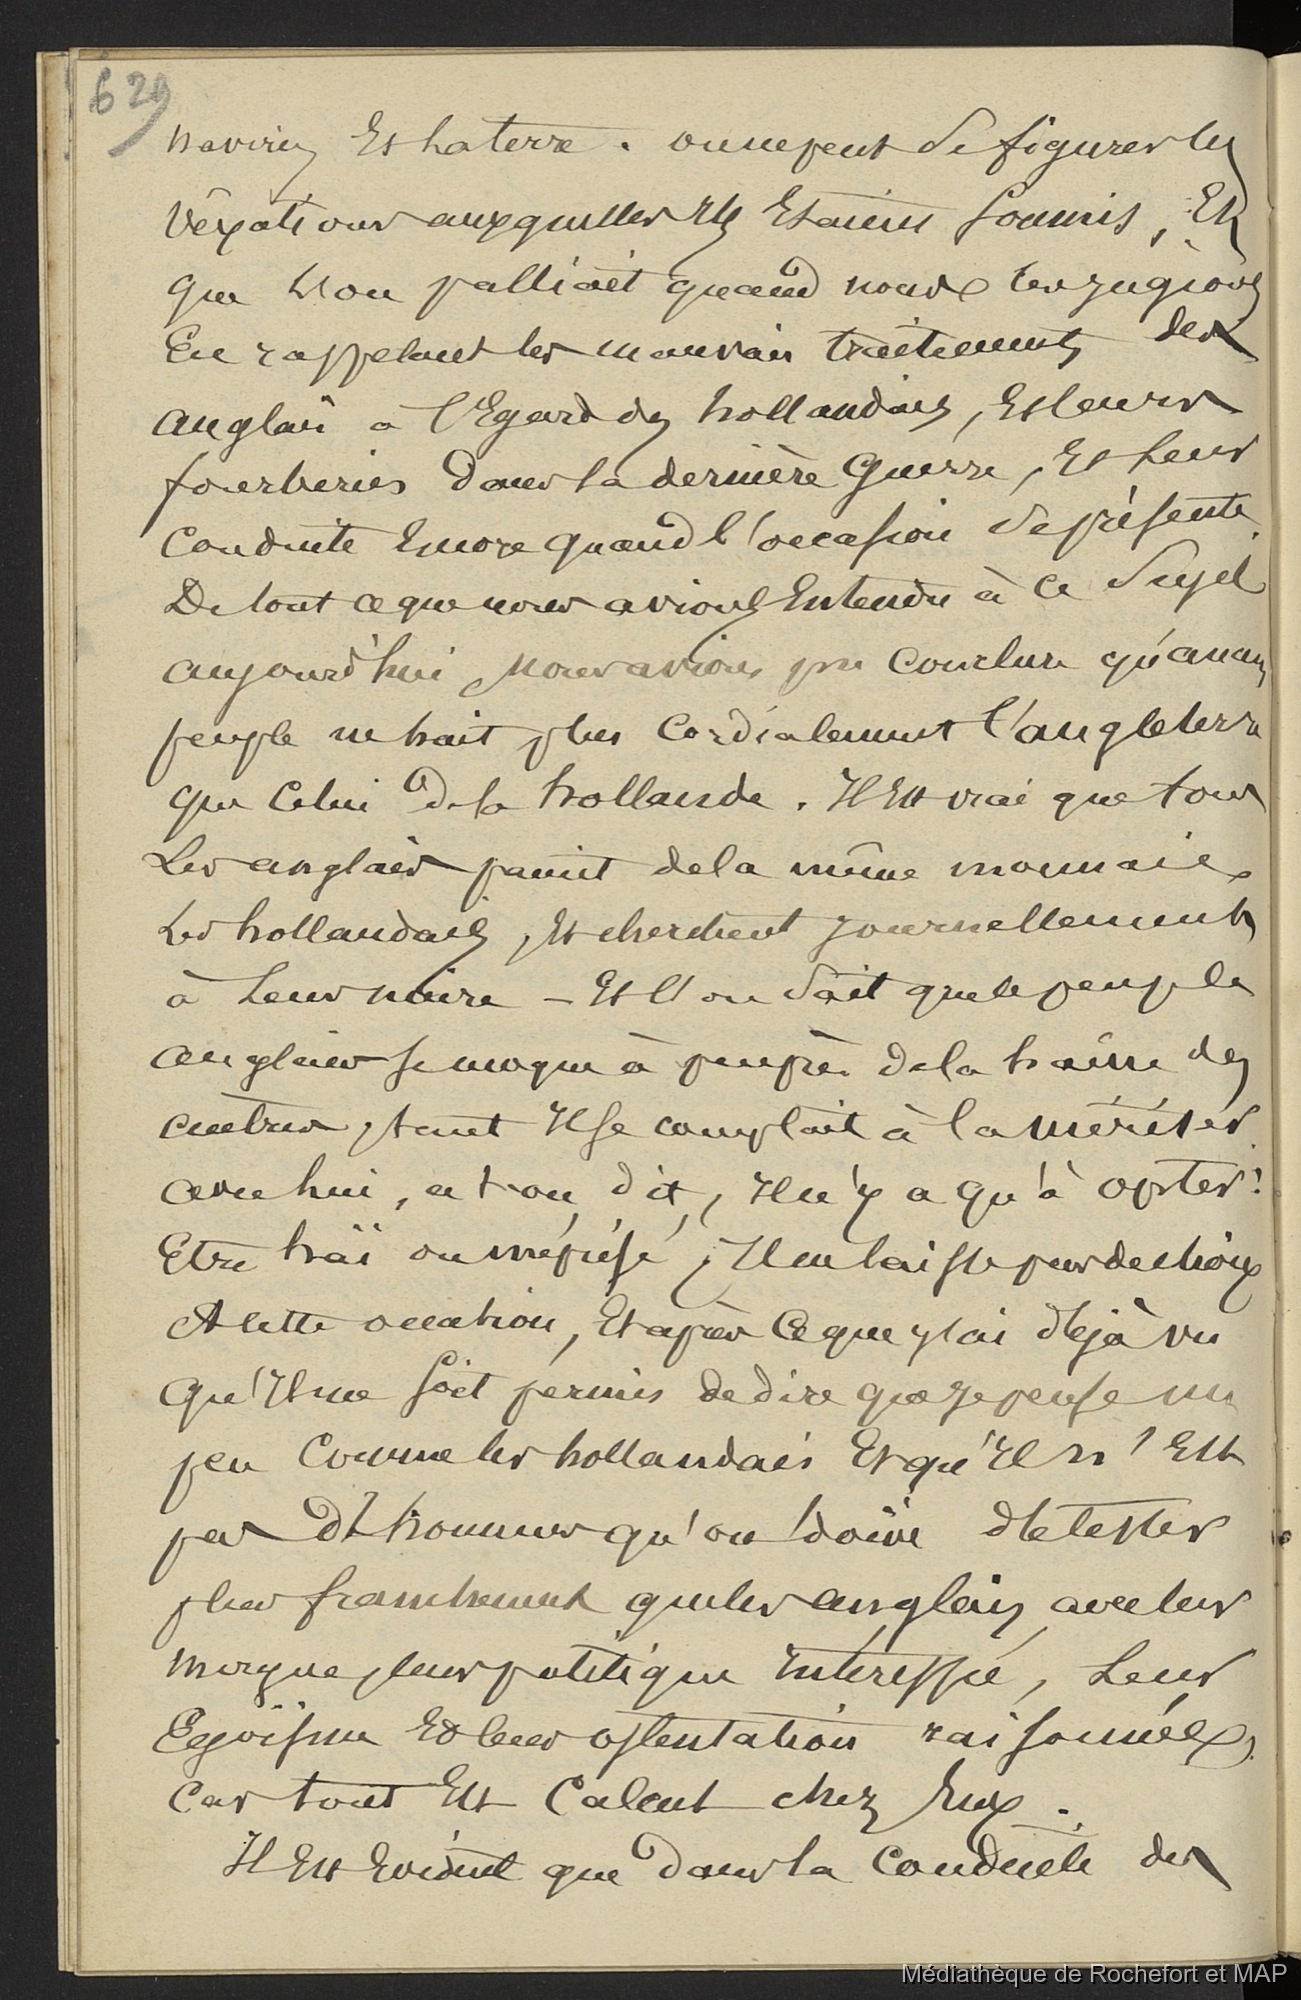 629
navires Et la terre. on ne peut se figurer les
vêxations auxquelles Ils Etaient soumis, Et
que l'on palliait quand nous les jugions
En rappelant les mauvais traitements des
anglais a l'Egard des hollandais, Et leurs
fourberies dans la dernière guerre, Et leur
conduite Encore quand l'occasion se présente.
De tout ce que nous avions Entendu à ce sujet
aujourd'hui, nous avions pu conclure qu'aucun
peuple ne hait plus cordialement l'angleterre
que celui de la hollande. Il Est vrai que tous
Les anglais paient de la même monnaie
Les hollandais, Et cherchent journellement
à leur nuire – Et l'on sait que le peuple
anglais se moque à peu près de la haine des
autres, tant Il se complait à la mériter
avec lui, a t-on dit, Il n'y a qu'à opter:
Etre haï ou méprisé, Il ne laisse pas de choix
A cette occation, Et après ce que j'ai déjà vu
qu'Il me soit permis de dire que je pense un
peu comme les hollandais Et qu'Il n'Est
pas d'hommes qu'on doive détester
plus franchement que les anglais avec leur
morgue, leur politique intéressée, Leur
Egoïsme Et leur ostentation raisonnée,
car tout Est calcul chez Eux.
Il Est Evident que dans la conduite des
Médiathèque de Rochefort et MAP